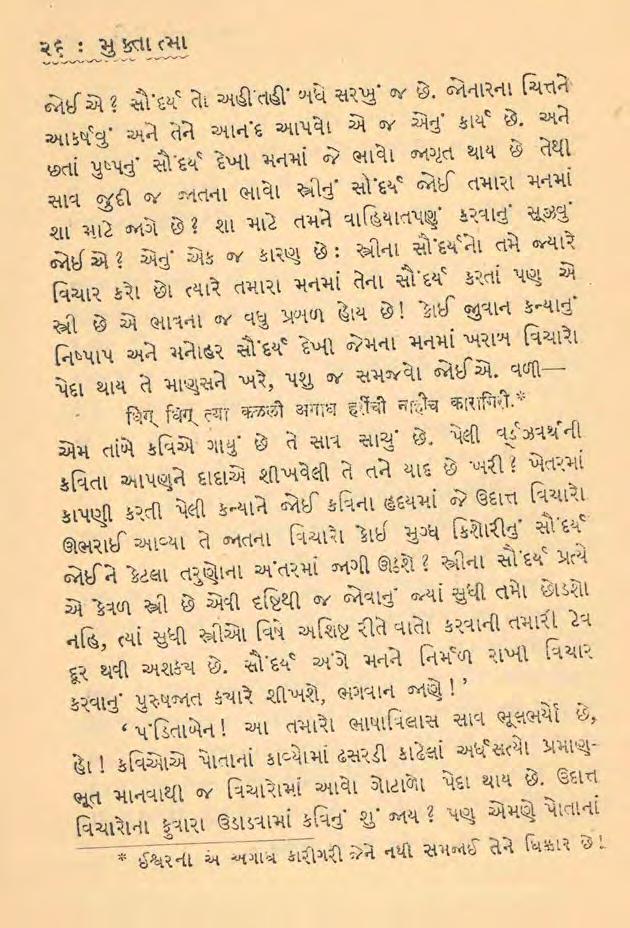 ૨૬ : મુક્તાત્મા
જોઈ એ? સૌંદર્ય તો અહીંતહીં બધે સરખું જ છે. જોનારના ચિત્તને
આકર્ષવું અને તેને આનંદ આપવો એ જ એનું કાર્ય છે. અને
છતાં પુષ્પનું સૌંદર્ય દેખી મનમાં જે ભાવો જાગૃત થાય છે તેથી
સાવ જુદી જ જાતના ભાવો સ્ત્રીનું સૌંદર્ય જોઈ તમારા મનમાં
શા માટે જાગે છે? શા માટે તમને વાહિયાતપણું કરવાનું સૂઝવું
જોઈ એ? એનું એક જ કારણ છે: સ્ત્રીના સૌંદર્યનો તમે જ્યારે
વિચાર કરો છો ત્યારે તમારા મનમાં તેના સૌંદર્ય કરતાં પણ એ
સ્ત્રી છે એ ભાવના જ વધુ પ્રબળ હોય છે! કોઈ જુવાન કન્યાનું
નિષ્પાપ અને મનોહર સૌંદર્ય દેખી જેમના મનમાં ખરાબ વિચારો
પેદા થાય તે માણસને ખરે, પશુ જ સમજવો જોઈએ. વળી—
धिग् धिग् त्या कळली अगाध हरिंची नाहींच कारागिरी.*
એમ તાંબે કવિએ ગાયું છે તે સાવ સાચું છે. પેલી વર્ડ્ઝવર્થની
કવિતા આપણને દાદાએ શીખવેલી તે તને યાદ છે ખરી? ખેતરમાં
કાપણી કરતી પેલી કન્યાને જોઈ કવિના હૃદયમાં જે ઉદાત્ત વિચારો
ઊભરાઈ આવ્યા તે જાતના વિચારો કોઈ મુગ્ધ કિશોરીનું સૌંદર્ય
જોઈને કેટલા તરુણોના અંતરમાં જાગી ઊઠશે? સ્ત્રીના સૌંદર્ય પ્રત્યે
એ કેવળ સ્ત્રી છે એવી દૃષ્ટિથી જ જોવાનું જ્યાં સુધી તમો છોડશો
નહિ, ત્યાં સુધી સ્ત્રીઓ વિષે અશિષ્ટ રીતે વાતો કરવાની તમારી ટેવ
દૂર થવી અશક્ય છે. સૌંદર્ય અંગે મનને નિર્મળ રાખી વિચાર
કરવાનું પુરુષજાત ક્યારે શીખશે, ભગવાન જાણે!’
‘પંડિતાબેન! આ તમારો ભાષાવિલાસ સાવ ભૂલભર્યો છે,
હો! કવિઓએ પોતાનાં કાવ્યોમાં ઢસરડી કાઢેલાં અર્ધસત્યો પ્રમાણ-
ભૂત માનવાથી જ વિચારોમાં આવો ગોટાળો પેદા થાય છે. ઉદાત્ત
વિચારોના ફુવારા ઉડાડવામાં કવિનું શું જાય? પણ એમણે પોતાનાં
* ઈશ્વરની અ અગાધ કારીગરી જેને નથી સમજાઈ તેને ધિક્કાર છે!